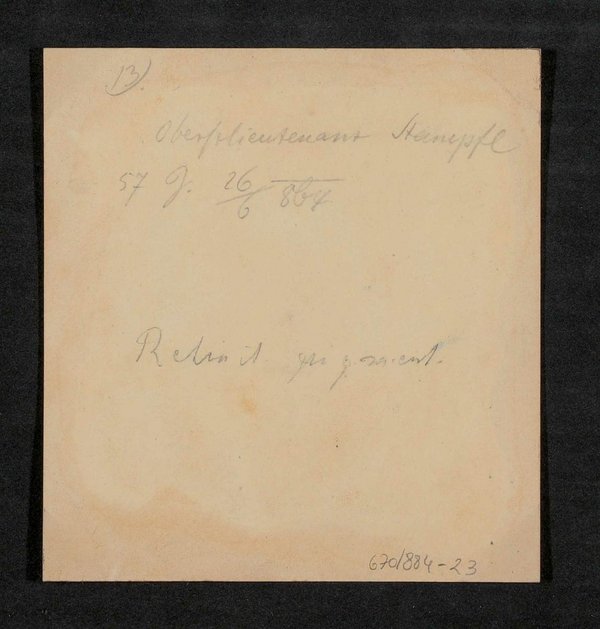 13).
Oberstlieutenant Stampfl
57 J. 26/6 864
Retinit. pigment.
670/884-23